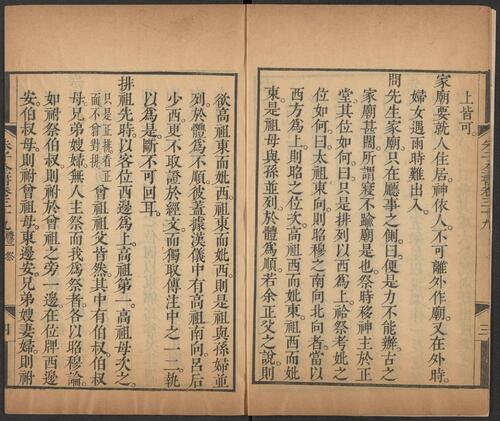 上皆可。
家廟要就人住居。神依人。不可離外作廟。又在外時。
婦女遇雨時難出入。
問先生家廟只在廳事之側。曰便是力不能辦。古之
家廟甚闊。所謂寢不踰廟是也。祭時移神主於正
堂。其位如何。曰只是排列以西為上。祫祭考妣之
位如何。曰太祖東向。則昭穆之南向北向者。當以
西方為上。則昭之位次。高祖西而妣東。祖西而妣
東。是祖母與孫並列。於體為順。若余正父之說。則
欲高祖東而妣西。祖東而妣西。則是祖與孫婦並
列。於體為不順。彼蓋據漢儀中有高祖南向。呂后
少西。更不取證於經文。而獨取傳注中之一二。執
以為是。斷不可回耳。
排祖先時。以客位西邊為上。高祖第一。高祖母次之。
只是正排看正面不曾對排
曾祖祖父皆然。其中有伯叔伯叔
母兄弟嫂婦無人主祭。而我為祭者。各以昭穆論。
如祔祭伯叔。則祔於曾祖之旁一邊。在位牌西邊
安。伯叔母則祔曾祖母東邊安。兄弟嫂妻婦。則祔
朱子全書卷三十九
禮三 祭
三
四